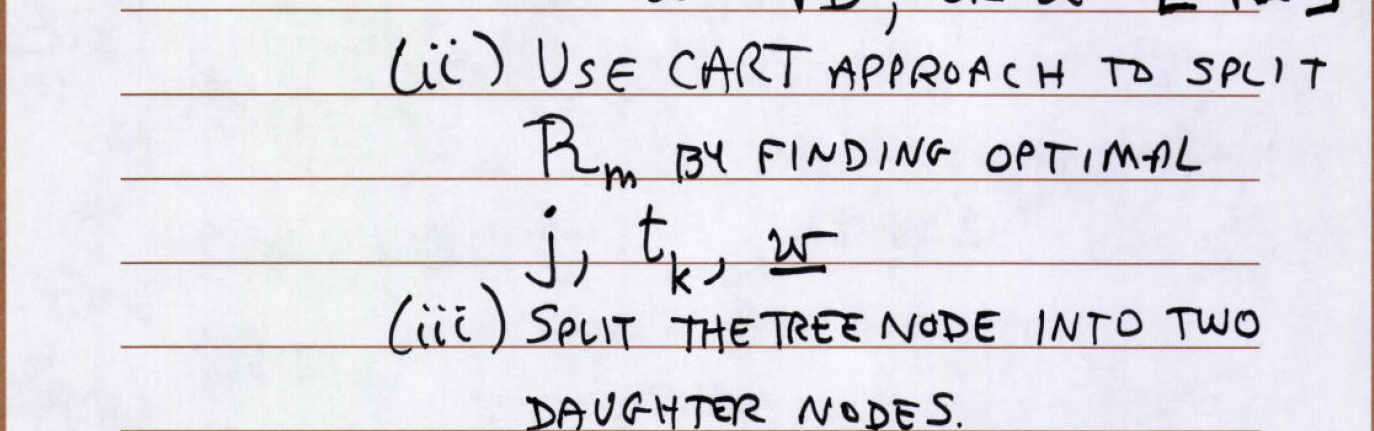 (ii) USE CART APPROACH TO SPLIT
Rm BY FINDING OPTIMAL
j, tk, w
(iii) SPLIT THE TREE NODE INTO TWO
DAUGHTER NODES.